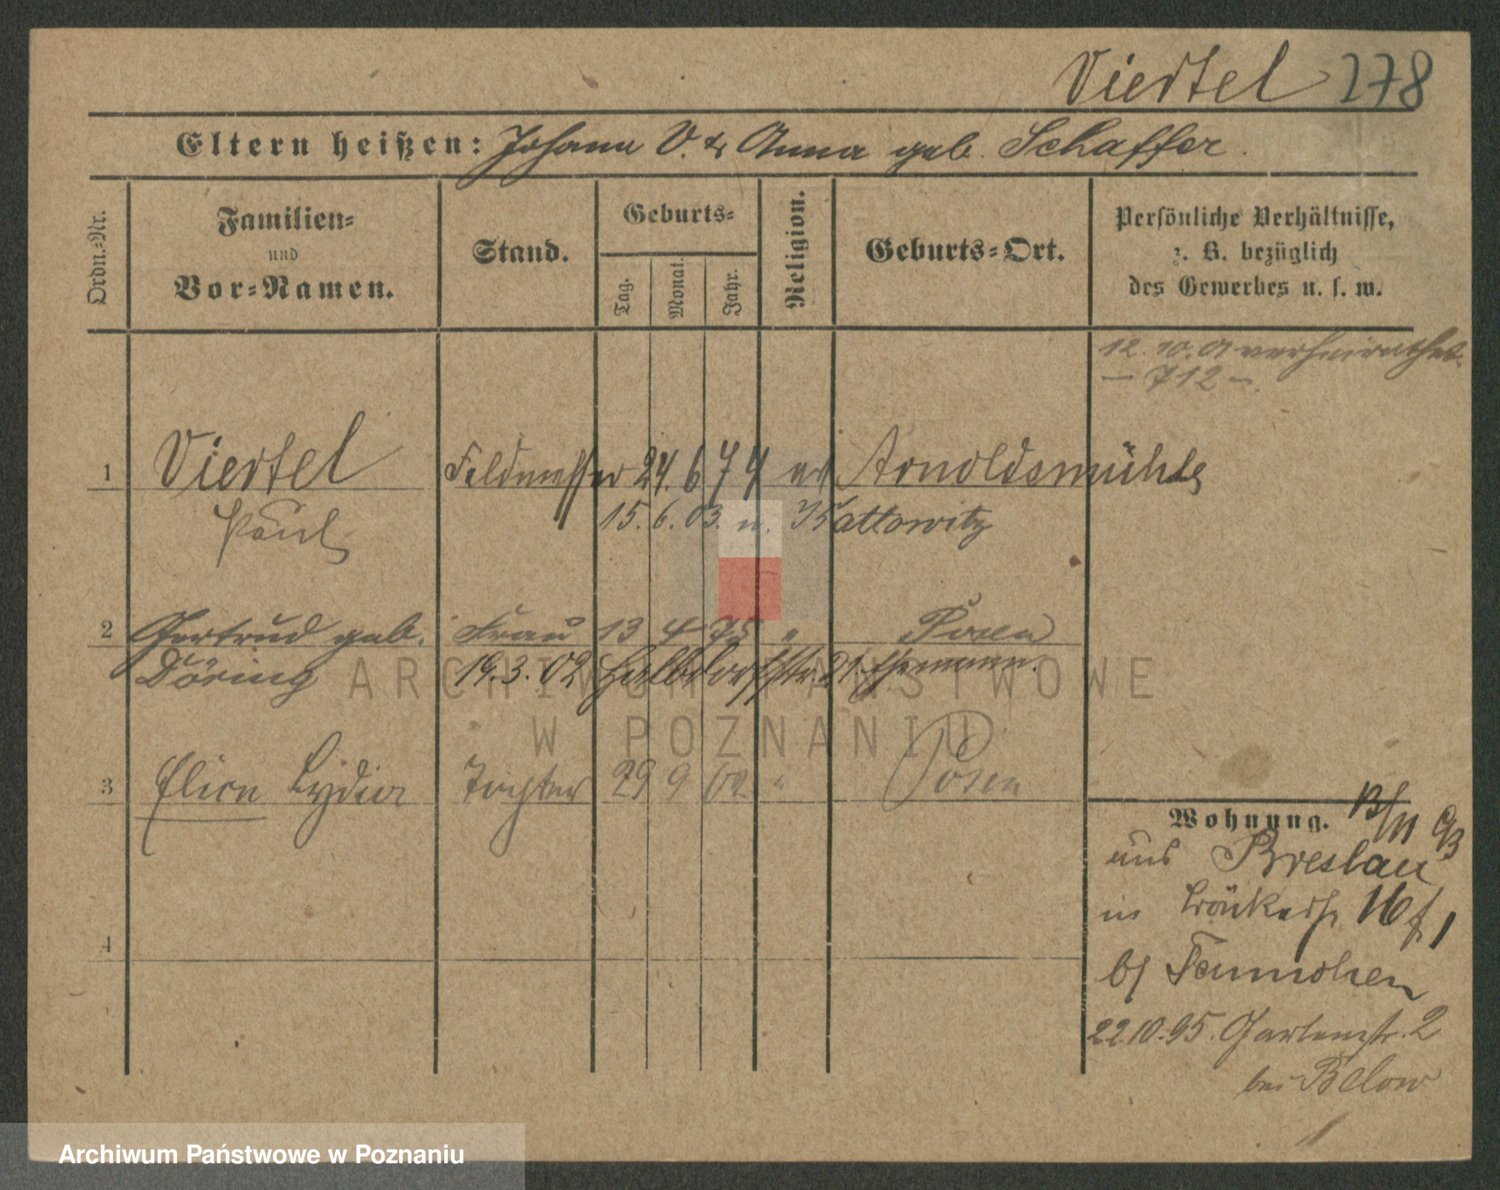 Viertel 278
Eltern heißen: Johann V. & Anna geb. Schaffer.
Ordn.-Nr.
Familien-
und
Vor-Namen.
Stand.
Geburts-
Tag.
Monat.
Jahr.
Religion.
Geburts-Ort.
Persönliche Verhältnisse,
z. B. bezüglich
des Gewerbes u. s. w.
12.10.01 verheirathet
— 712 —.
1 Viertel Feldmesser 24. 6 74 Arnoldsmühle
Paul 15. 6. 03. n. Kattowitz
2 Gertrud geb. Frau 13 4 75 " Posen
Döring 19.3.02 Halbdorfstr. 21
3 Lydia Tochter 29 9 02 " Posen
4
Wohnung. 13/11 93
aus Breslau
in 16
b/
22.10.95. Gartenstr. 2
bei Below
ARCHIWUM PAŃSTWOWE
W POZNANIU
Archiwum Państwowe w Poznaniu